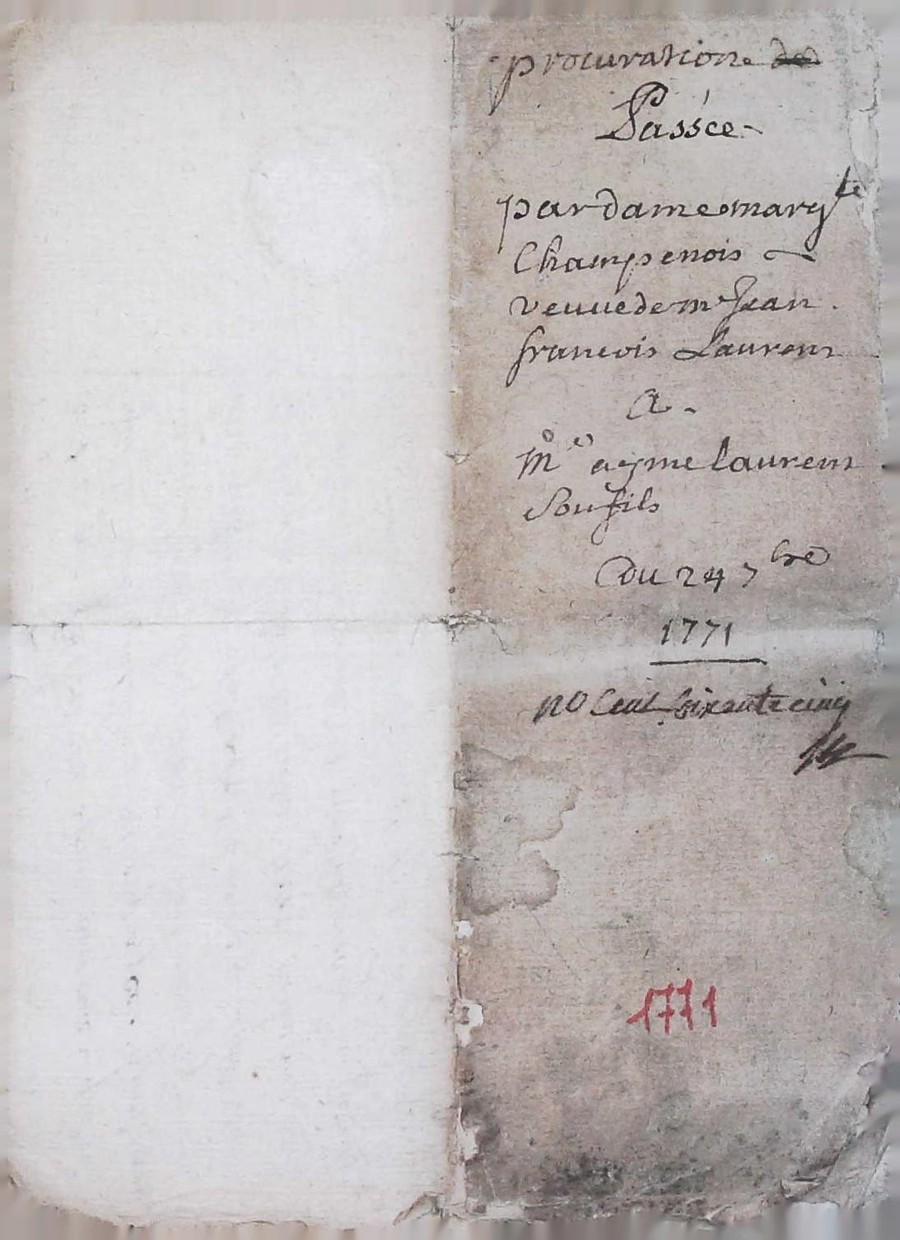 procuration
Passée
par dame marg.te
Champenois
veuve de mr Jean
francois Laurent
A
ayme laurent
Son fils
Du 24 7bre
1771
no Cent soixante cinq
1771